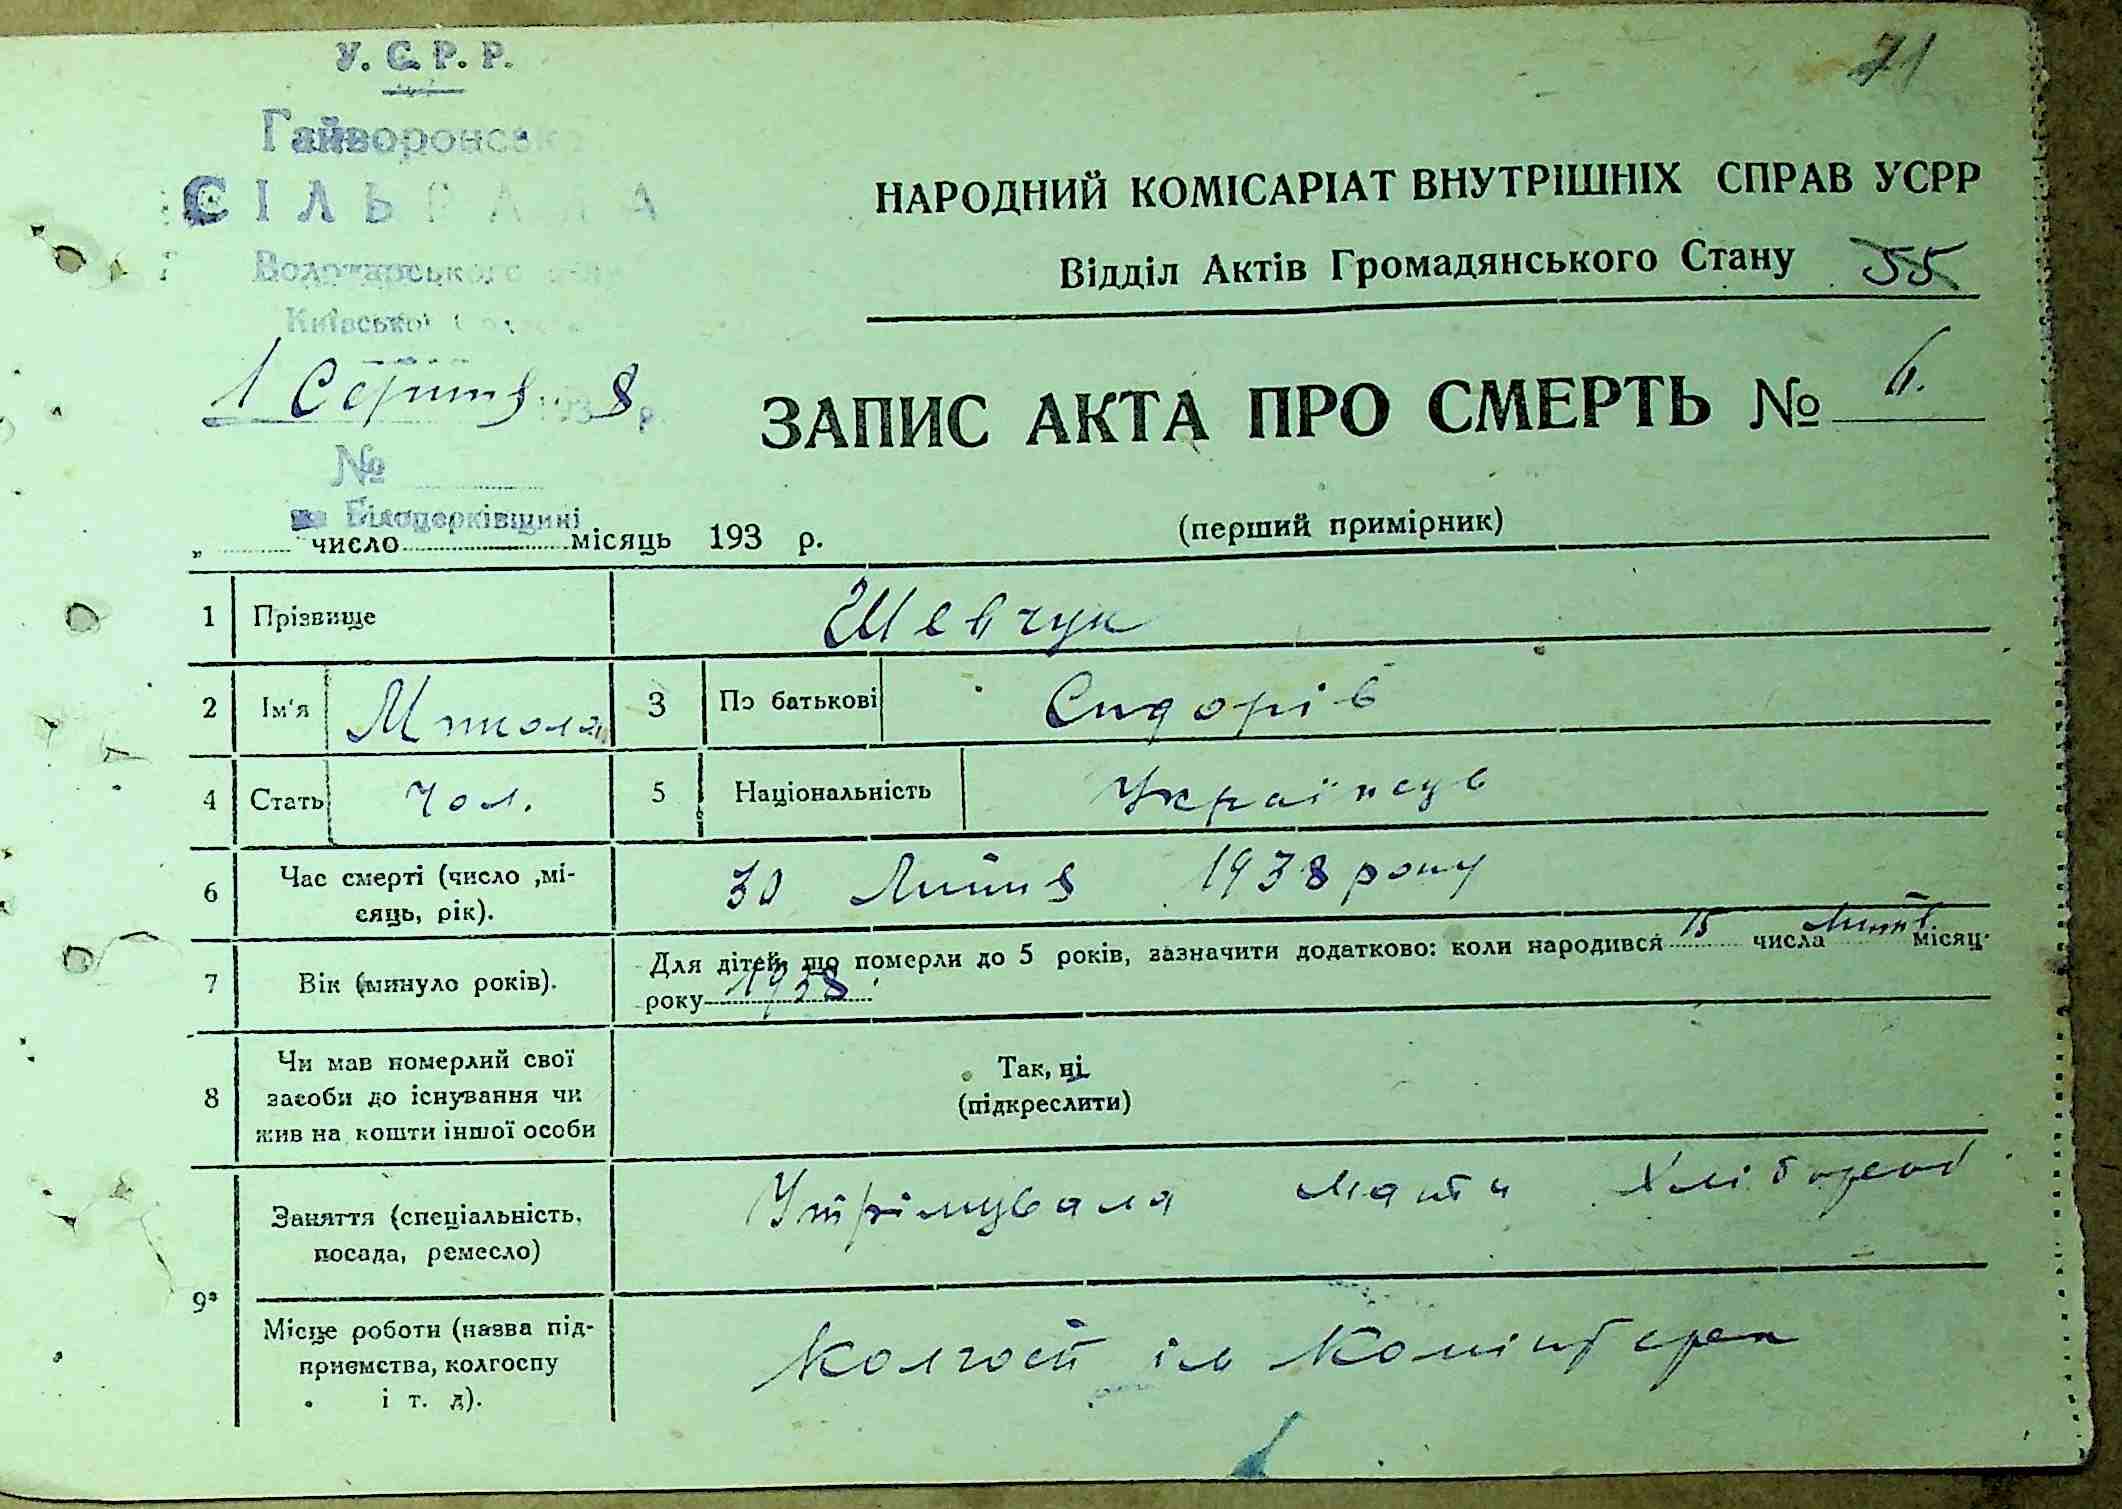 У. С. Р. Р.
71
Гайворонська
СІЛЬРАДА
НАРОДНИЙ КОМІСАРІАТ ВНУТРІШНІХ СПРАВ УСРР
Володарського
Відділ Актів Громадянського Стану 55
Київської
1 Серпня 1938 р.
ЗАПИС АКТА ПРО СМЕРТЬ № 6.
№
на Білоцерківщині
„ число місяць 193 р.
(перший примірник)
1 Прізвище Шевчук
2 Ім'я Микола 3 По батькові Сидорів
4 Стать Чол. 5 Національність Українець
6 Час смерті (число ,мі-
сяць, рік). 30 Липня 1938 року
7 Вік (минуло років). Для дітей, що померли до 5 років, зазначити додатково: коли народився 15 числа Липня місяц.
року 1938
8 Чи мав померлий свої
засоби до існування чи
жив на кошти іншої особи
Так, ні
(підкреслити)
9
Заняття (спеціальність,
посада, ремесло) Утрімувала мати Хлібороб
Місце роботи (назва під-
приємства, колгоспу
і т. д). Колгосп ім Комінтерн